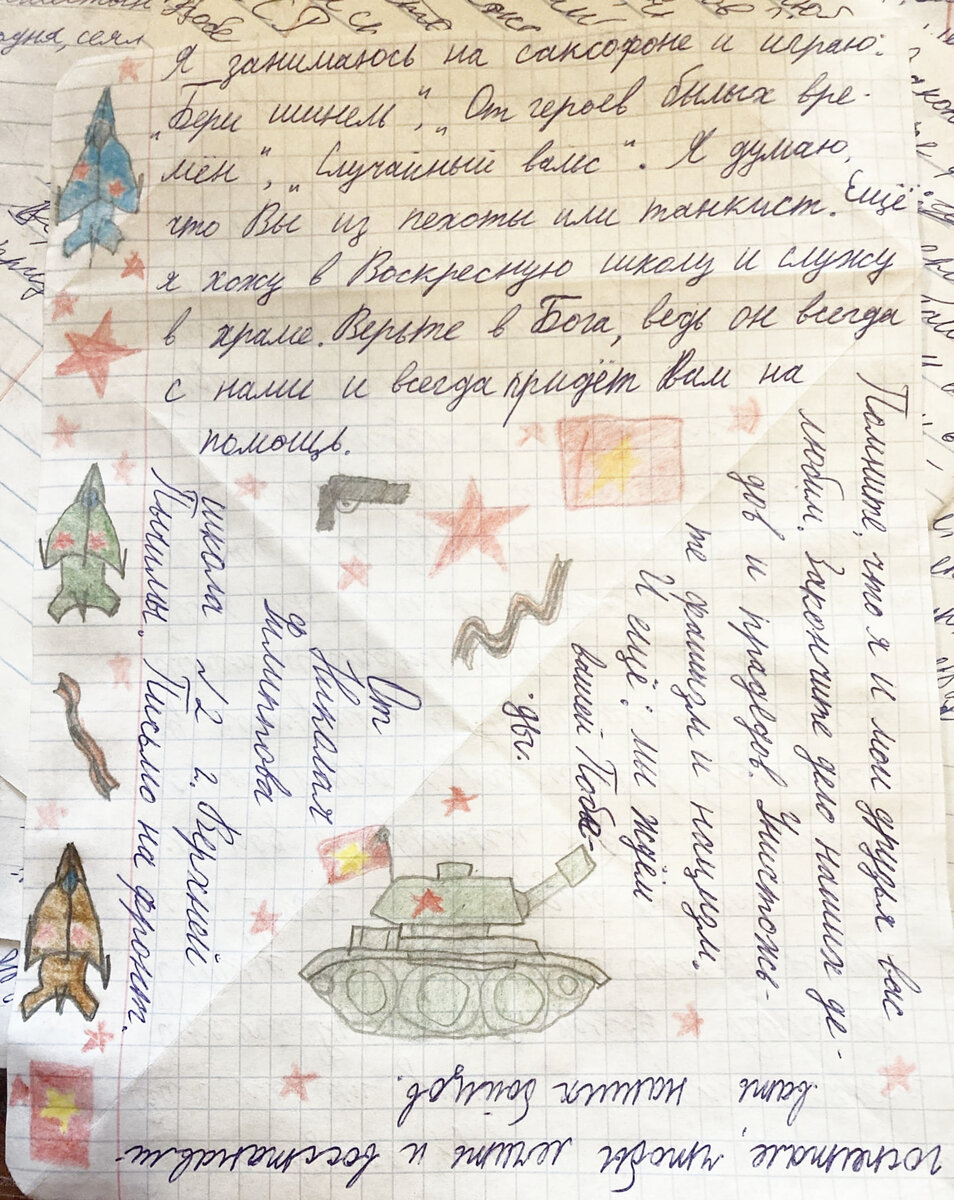 Я занимаюсь на саксофоне и играю:
„Бери шинель“, „От героев былых вре-
мён“, „Случайный вальс“. Я думаю,
что Вы из пехоты или танкист. Ещё
я хожу в Воскресную школу и служу
в храме. Верьте в Бога, ведь он всегда
с нами и всегда придёт Вам на
помощь.
Помните, что я и мои друзья вас
любим. Закончите дело наших де-
дов и прадедов. Уничтожь-
те фашизм и нацизм.
И ещё: мы ждём
вашей Побе-
ды.
госпитале, чтобы лечить и восстанавли-
вать наших бойцов.
От
Николая
Филиппова
школа №2 г. Верхней
Пышмы. Письмо на фронт.